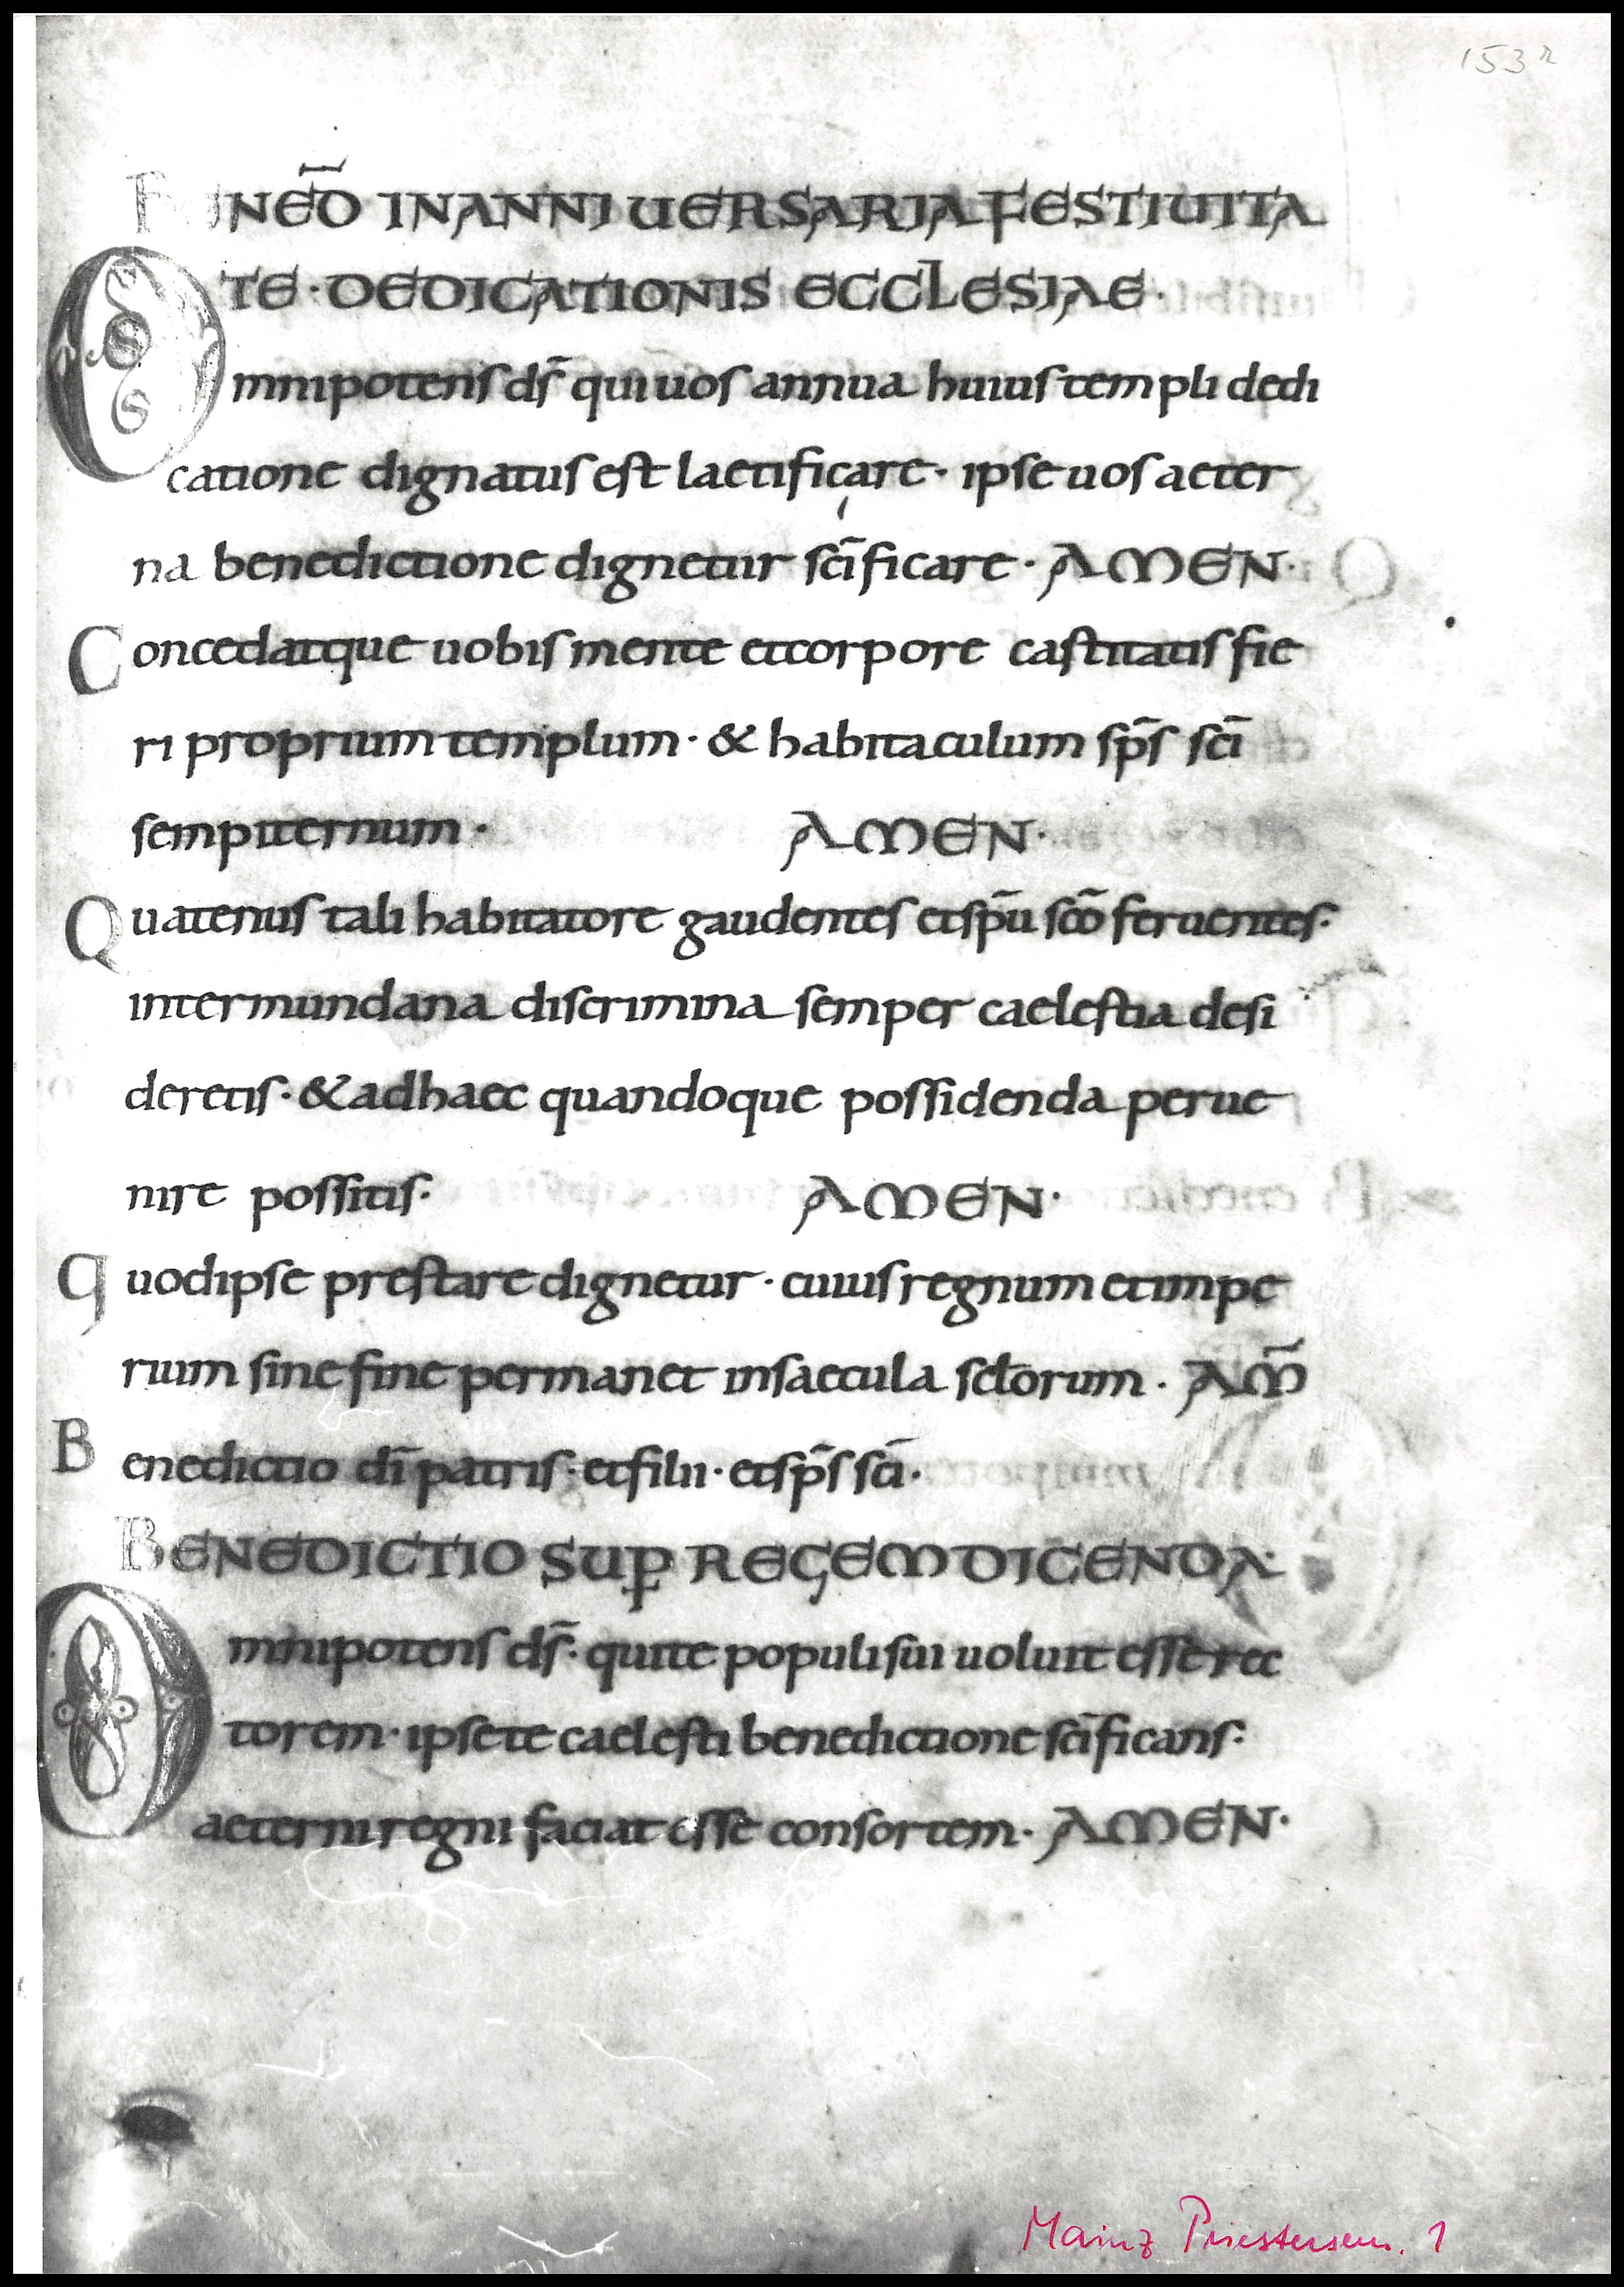 153r
BENED̄ IN ANNIUERSARIA FESTIUITA
TE · DEDICATIONIS ECCLESIAE ·
Omnipotens d̄s qui uos annua huius templi dedi
catione dignatus est laetificare · ipse uos aeter
na benedictione dignetur sc̄ificare · AMEN ·
Concedatque uobis mente et corpore castitatis fie
ri proprium templum · & habitaculum sp̄s sc̄i
sempiternum · AMEN ·
Quatenus tali habitatore gaudentes et sp̄u sc̄o feruentes ·
inter mundana discrimina semper caelestia desi
deretis · & ad haec quandoque possidenda perue
nire possitis · AMEN ·
Quod ipse prestare dignetur · cuius regnum et impe
rium sine fine permanet in saecula sclorum · AM̄
Benedictio dī patris · et filii · et sp̄s sc̄i ·
BENEDICTIO SUP̲ REGEM DICENDA ·
Omnipotens d̄s · qui te populi sui uoluit esse rec
torem · ipse te caelesti benedictione sc̄ificans ·
aeterni regni faciat esse consortem · AMEN ·
Mainz Priestersem. 1